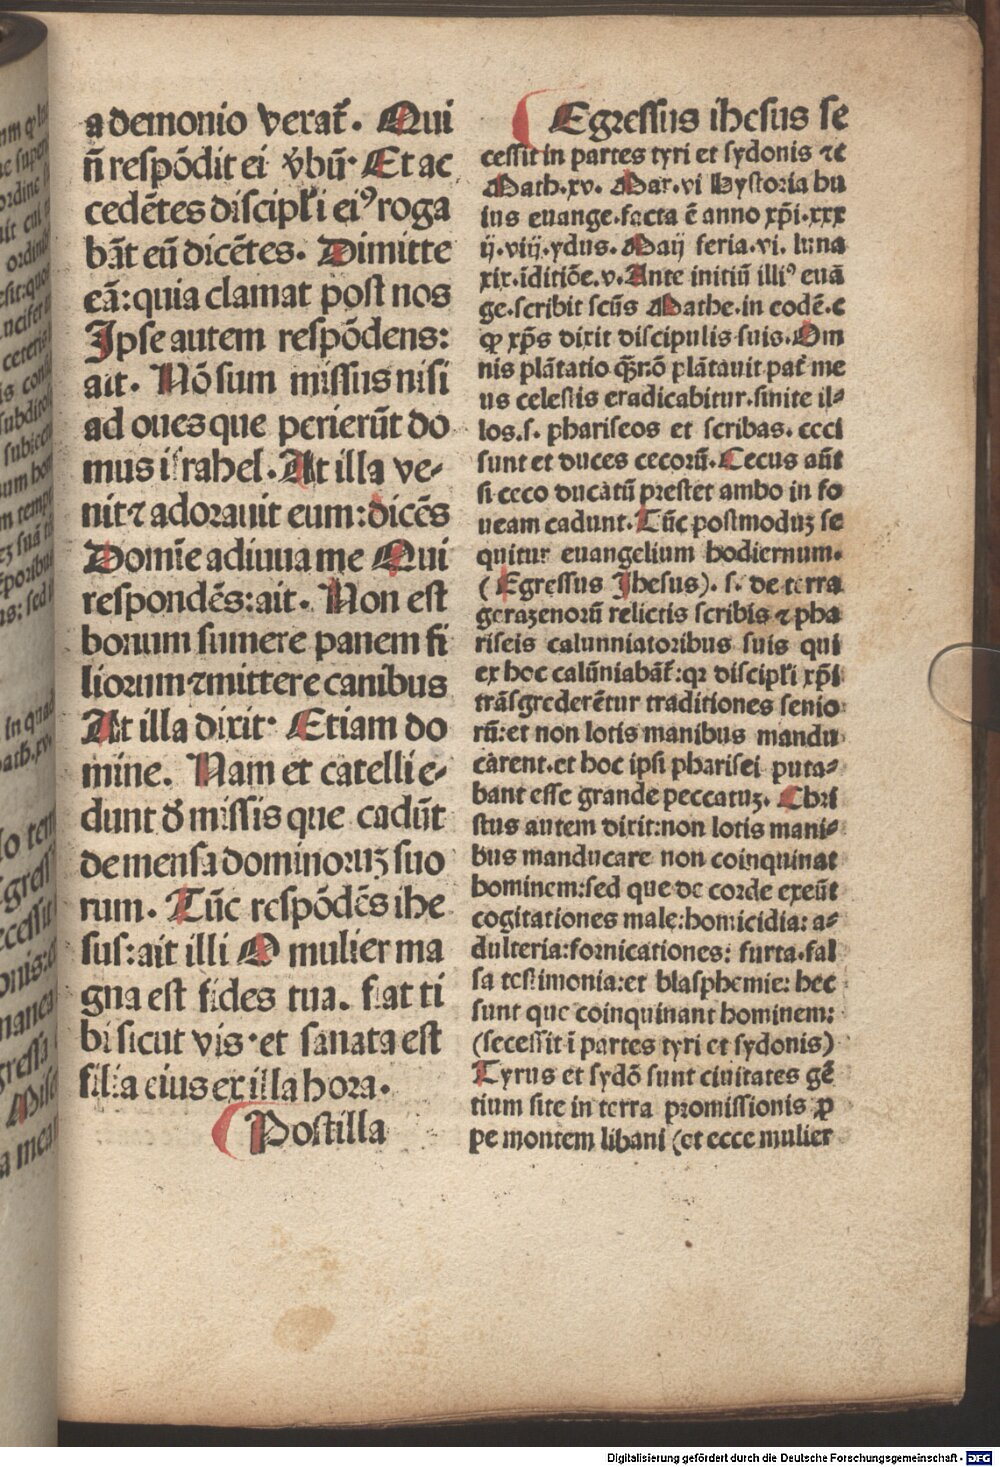 a demonio vexat᷑. Qui
n̄ respōdit ei v̆bū. Et ac
cedētes discipl̓i eiꝰ roga
bāt eū dicētes. Dimitte
eā: quia clamat post nos
Ipse autem respōdens:
ait. Nō sum missus nisi
ad oues que perierūt do
mus israhel. At illa ve⸗
nit ⁊ adorauit eum: dicēs
Domīe adiuua me Qui
respondēs: ait. Non est
bonum sumere panem fi
liorum ⁊ mittere canibus
At illa dixit. Etiam do
mine. Nam et catelli e⸗
dunt d̓ missis que cadūt
de mensa dominoruꝫ suo
rum. Tūc respōdēs ihe
sus: ait illi O mulier ma
gna est fides tua. fiat ti
bi sicut vis. et sanata est
filia eius ex illa hora.
Postilla
Egressus ihesus se
cessit in partes tyri et sydonis ⁊c̄
Math. xv. Mar. vi Hystoria hu
ius euange. facta ē anno xp̄i. xxx
ij. viij. ydus. Maij feria. vi. luna
xix. īditiōe. v. Ante initiū illiꝰ euā
ge. scribit scūs Mathe. in eodē. c
ꝙ xp̄s dixit discipulis suis. Om
nis plātatio quā nō plātauit pat̓ me
us celestis eradicabitur. sinite il⸗
los. s. phariseos et scribas. ceci
sunt et duces cecorū. Cecus aūt
si ceco ducatū prestet ambo in fo
ueam cadunt. Tūc postmoduꝫ se
quitur euangelium hodiernum.
(Egressus Jhesus). s. de terra
gerazenorū relictis scribis ⁊ pha
riseis calunniatoribus suis qui
ex hoc calūniabāt᷑: qꝛ discipl̓i xp̄i
trāsgrederētur traditiones senio
rū: et non lotis manibus mandu
carent. et hoc ipsi pharisei puta⸗
bant esse grande peccatuꝫ. Chri
stus autem dixit: non lotis mani⸗
bus manducare non coinquinat
hominem: sed que de corde exeūt
cogitationes male: homicidia: a⸗
dulteria: fornicationes: furta. fal
sa testimonia: et blasphemie: hec
sunt que coinquinant hominem:
(secessit ī partes tyri et sydonis)
Tyrus et sydō sunt ciuitates gē
tium site in terra promissionis ꝓ
pe montem libani (et ecce mulier
Digitalisierung gefördert durch die Deutsche Forschungsgemeinschaft - DFG